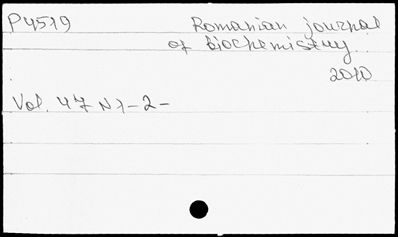 P4519 Romanian journal
of biochemistry.
2010
Vol. 47 N 1-2-